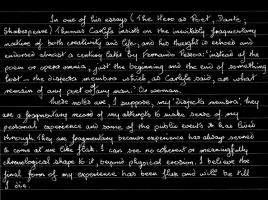 In one of his essays (The Hero as Poet, Dante,
Shakespeare) Thomas Carlyle insists on the inevitably fragmentary
nature of both creativity and life, and his thought is echoed and
endorsed almost a century later by Fernando Pessoa: 'instead of the
poem or opera omnia, just the beginning and the end of something
lost - the disjecta membra which as Carlyle said, are what
remain of any poet, of any man.' Or woman.
These notes are, I suppose, my 'disjecta membra', they
are a fragmentary record of my attempts to make sense of my
personal experience and some of the public events it has lived
through. They are fragmentary because experience has always seemed
to come at me like flak. I can see no coherent or meaningfully
chronological shape to it, beyond physical erosion. I believe the
final form of my experience has been flak and will be till
I die.